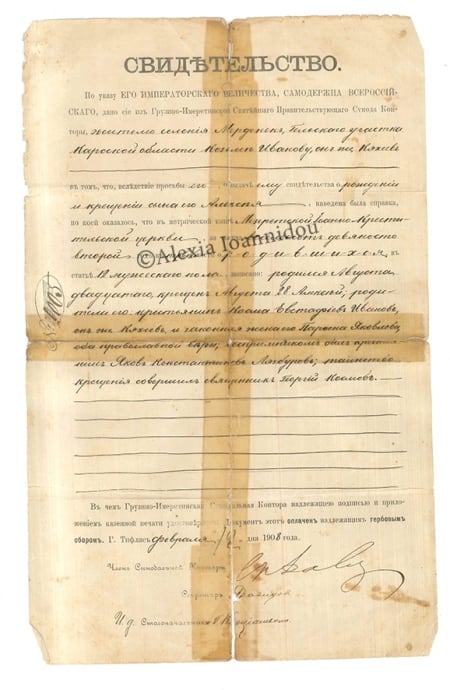 СВИДѢТЕЛЬСТВО.
По указу ЕГО ИМПЕРАТОРСКАГО ВЕЛИЧЕСТВА, САМОДЕРЖЦА ВСЕРОССІЙ-
СКАГО, дано сіе изъ Грузино-Имеретинской Святѣйшаго Правительствующаго Сѵнода Кон-
торы, жителю селенія Мерденекъ, Гельскаго участка
Карсской области Козьмѣ Иванову, онъ же Князевъ
въ томъ, что, вслѣдствіе просьбы его о выдачѣ ему свидѣтельства о рожденіи
и крещеніи сына его Алексѣя, наведена была справка,
по коей оказалось, что въ метрической книгѣ Іоанно-Крести-
тельской церкви девяносто
второй родившихся, въ
статьѣ 12 мужескаго пола, записано: родился Августа
двадцатаго, крещенъ Августа 28 Алексѣй; роди-
тели его: крестьянинъ Косма Евстафіевъ Ивановъ,
онъ же Князевъ, и законная жена его Яковлева,
оба православной вѣры; воспріемникомъ былъ
Яковъ Константиновъ; таинство
крещенія совершилъ священникъ Георгій Космовъ.
№ 1005
©Alexia Ioannidou
Въ чемъ Грузино-Имеретинская Сѵнодальная Контора надлежащею подписью и прило-
женіемъ казенной печати удостовѣряетъ. Документъ этотъ оплаченъ надлежащимъ гербовымъ
сборомъ. Г. Тифлисъ, февраля дня 1908 года.
Членъ Сѵнодальной Конторы
Секретарь
И. д. Столоначальника